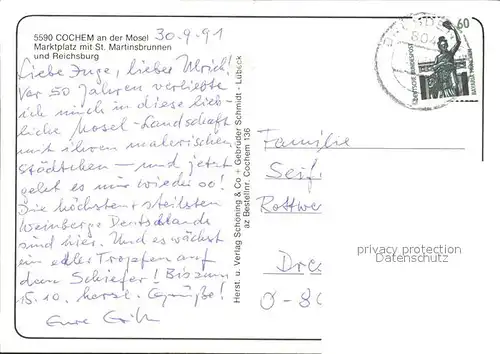 5590 COCHEM an der Mosel
Marktplatz mit St. Martinsbrunnen
und Reichsburg
30.9.91
Liebe Inge, lieber Ulrich!
Vor 50 Jahren verliebte
ich mich in diese lieb-
liche Mosel-Landschaft
mit ihren malerischen
Städtchen – und jetzt
geht es mir wieder so!
Die höchsten + steilsten
Weinberge Deutschlands
sind hier. Und es wächst
ein edler Tropfen auf
dem Schiefer! Bis zum
15.10. herzl. Grüße!
Eure
Herst. u. Verlag Schöning & Co + Gebrüder Schmidt - Lübeck
az Bestellnr. Cochem 136
60
DEUTSCHE BUNDESPOST
Familie
Seif
Rottwe
Dre
O-80
privacy protection
Datenschutz